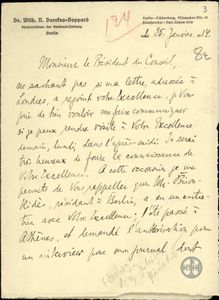 3
Dr. Wilh. N. Doerkes-Boppard
Chefredakteur der National-Zeitung
Berlin
Berlin-Schöneberg,
134
Le 25 Janvier 14
Monsieur le Président du Conseil,
ne sachant pas si ma lettre, adressée à
Londres, a rejoint votre Excellence, je vous
prie de très vouloir me faire communiquer
si je peux rendre visite à Votre Excellence
demain, lundi, dans l'après-midi. Je serai
très heureux de faire la connaissance de
votre Excellence. A cette occasion je me
permets de vous rappeller que Mr.
résidant à Berlin, a eu un entre-
tien avec Votre Excellence;
Athènes, et demandé l'autorisation pour
un interview pour mon journal dont